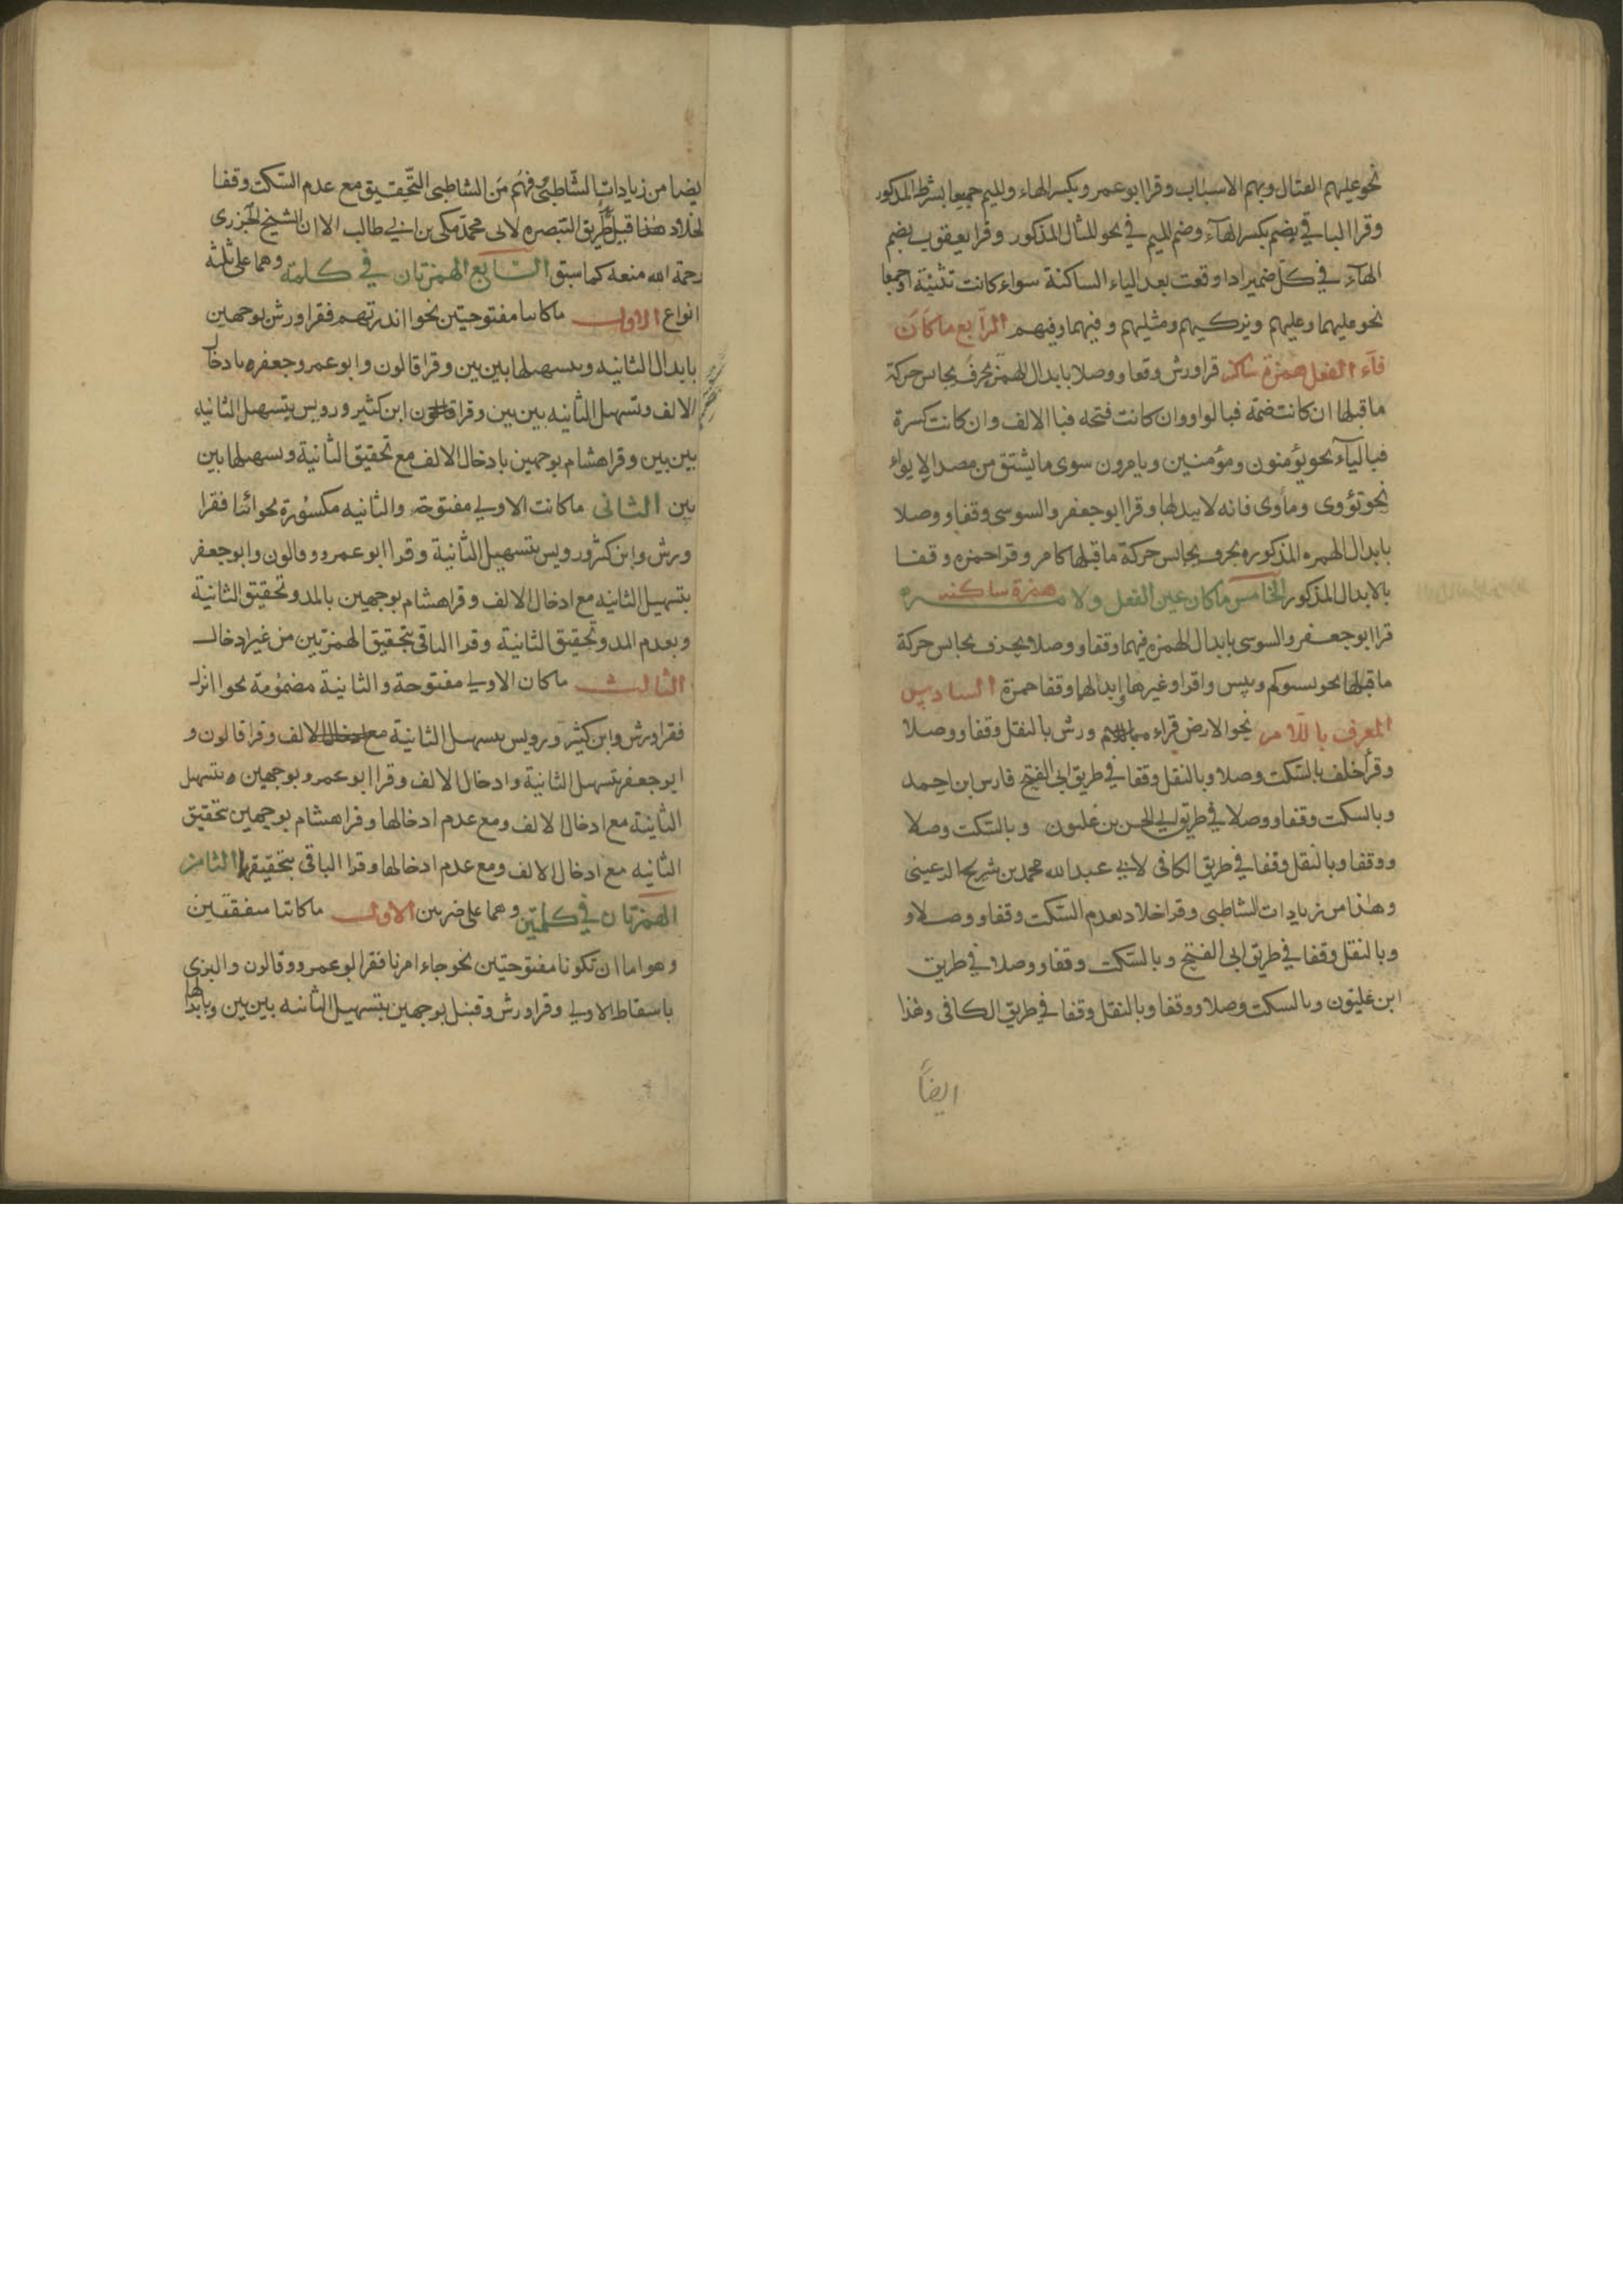 نحو عليهم القتال وبهم الاسباب وقرا ابو عمرو بكسر الهاء والميم جميعا بشرط المذكور
وقرا الباقي بضم بكسر الهآء وضم الميم في نحو المثال المذكور وقرا يعقوب بضم
الهآء في كلّ ضمير اذا وقعت بعد الياء الساكنة سواء كانت تثنية او جمعا
نحو عليهما وعليهم ويزكيهم ومثليهم وفيهما وفيهم الرابع ما كان
فآء الفعل همزة ساكنه قرا ورش وقفا ووصلا بابدال الهمزة بحرف يجانس حركة
ما قبلها ان كانت ضمّة فبا لواو وان كانت فتحه فبا الالف وان كانت كسرة
فبا ليآء نحو يؤمنون ومؤمنين ويامرون سوى ما يشتق من مصدر الايواء
نحو تؤوى ومأوى فانه لا يبدلها وقرا ابو جعفر والسوسى وقفا ووصلا
بابدال الهمزه المذكوره بحرف يجانس حركة ما قبلها كما مر وقرا حمزه وقفا
بالابدال المذكور الخامس ما كان عين الفعل ولامه همزة ساكنه
قرا ابو جعفر والسوسى بابدال الهمزه فيهما وقفا ووصلا بحرف يجانس حركة
ما قبلها نحو تسوكم وبيس واقرا وغيرها وابدالها وقفا حمزة السادس
المعرف باللام نحو الارض قراء ورش بالنقل وقفا ووصلا
وقرأ خلف بالسّكت وصلا وبالنقل وقفا في طريق ابى الفتح فارس ابن احمد
وبالسكت وقفا ووصلا في طريق ابي الحسن بن غلبون وبالسّكت وصلا
ووقفا وبالنقل وقفا في طريق الكافى لابي عبد الله محمد بن شريح الرعينى
وهذا من زيادات الشاطبى وقرا خلاد بعدم السّكت وقفا ووصلا و
وبالنقل وقفا في طريق ابى الفتح وبالسّكت وقفا ووصلا في طريق
ابن غلبون وبالسكت وصلا ووقفا وبالنقل وقفا في طريق الكافى وهذا
ايضاً
يضا من زيادات الشّاطبىّ وفهم من الشاطبى التّحقيق مع عدم السّكت وقفا
لخلاد هذا قيل طريق التبصره لابى محمد مكى بن ابي طالب الا ان الشيخ الجزرى
رحمة الله منعه كما سبق السّابع الهمزتان في كلمة وهما على ثلثة
انواع الاول ما كانتا مفتوحتين نحو ااندرتهم فقرا ورش بوجهين
بابدال الثانيه وبتسهيلها بين بين وقرا قالون وابو عمرو وجعفر بادخال
الالف وتسهيل الثانيه بين بين وقرا ابن كثير ورويس بتسهيل الثانية
بين بين وقرا هشام بوجهين بادخال الالف مع تحقيق الثانية وتسهيلها بين
بين الثانى ما كانت الاولي مفتوحة والثانيه مكسورة نحو ائنا فقرا
ورش وابن كثير ورويس بتسهيل الثانية وقرا ابو عمرو وقالون وابو جعفر
بتسهيل الثانيه مع ادخال الالف وقرا هشام بوجهين بالمد وتحقيق الثانية
وبعدم المد وتحقيق الثانية وقرا الباقى بتحقيق الهمزتين من غير ادخال
الثالث ما كان الاولي مفتوحة والثانية مضمومة نحو اانزل
فقرا ورش وابن كثير ورويس بتسهيل الثانية مع ادخال الالف وقرا قالون و
ابو جعفر بتسهيل الثانية وادخال الالف وقرا ابو عمرو بوجهين بتسهيل
الثانية مع ادخال الالف ومع عدم ادخالها وقرا هشام بوجهين بتحقيق
الثانيه مع ادخال الالف ومع عدم ادخالها وقرا الباقى بتحقيقها الثامن
الهمزتان في كلمتين وهما على ضربين الاول ما كانتا متفقتين
وهو اما ان تكونا مفتوحتين نحو جاء امرنا فقرا ابو عمرو وقالون والبزى
باسقاط الاولي وقرا ورش وقنبل بوجهين بتسهيل الثانيه بين بين وبابدالها